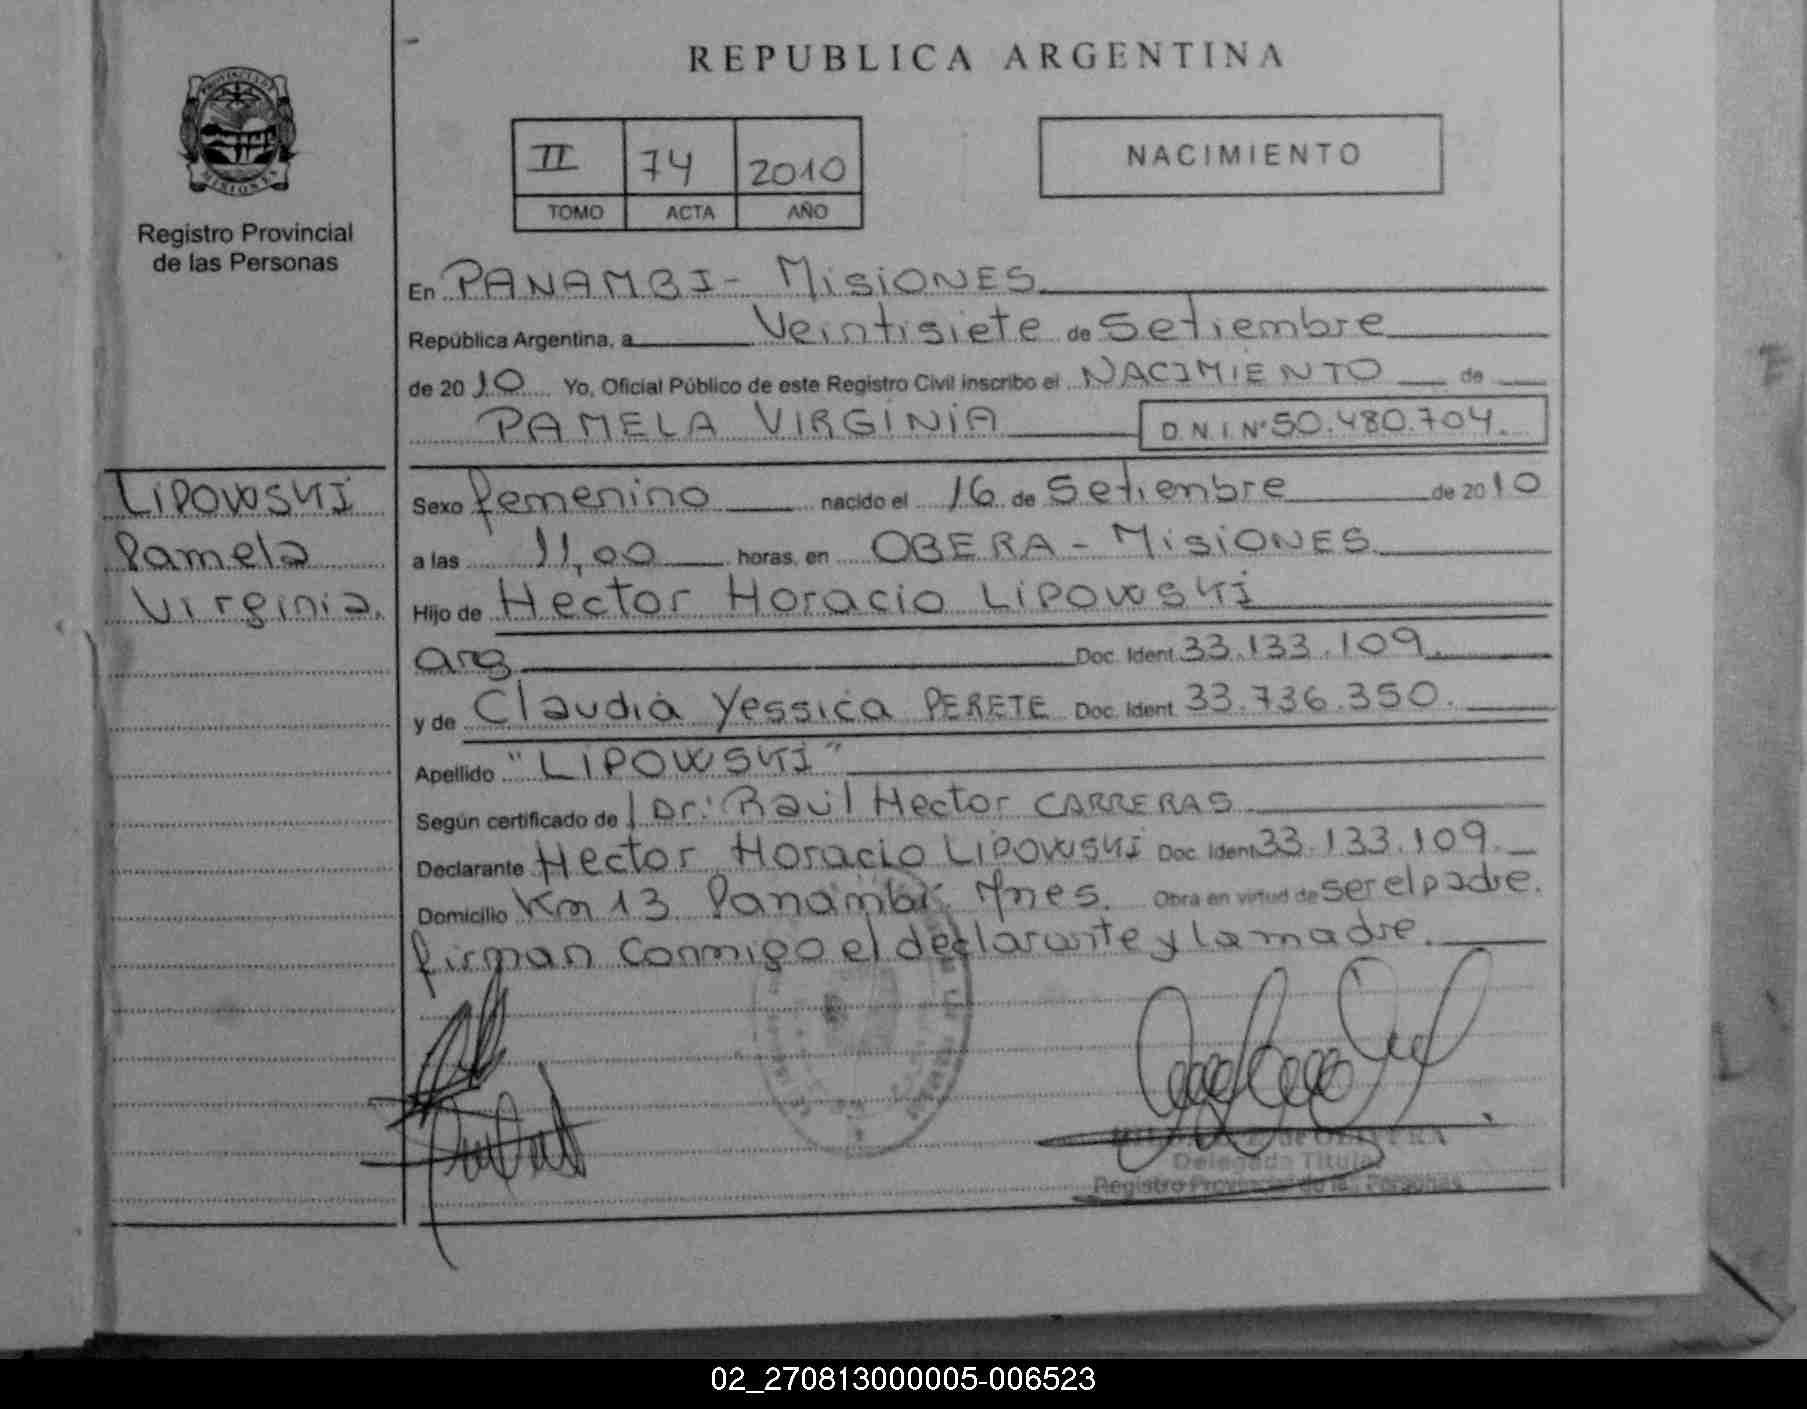 REPUBLICA ARGENTINA
II 74 2010
TOMO ACTA AÑO
NACIMIENTO
PROVINCIA DE
MISIONES
Registro Provincial
de las Personas
En PANAMBI - MisiONES
República Argentina, a Veintisiete de Setiembre
de 2010 Yo, Oficial Público de este Registro Civil inscribo el NACIMIENTO de
PAMELA VIRGINIA D.N.I. Nº 50.480.704.
LIPOWSKI
Pamela
Virginia.
Sexo femenino nacido el 16 de Setiembre de 2010
a las 11,00 horas, en OBERA - MisiONES
Hijo de Hector Horacio LIPOWSKI
arg Doc. Ident. 33.133.109.
y de Claudia Yessica PERETE Doc. Ident. 33.736.350.
Apellido "LIPOWSKI"
Según certificado de Dr: Raúl Hector CARRERAS
Declarante Hector Horacio LIPOWSKI Doc. Ident. 33.133.109.
Domicilio Km 13 Panambi Mnes. Obra en virtud de ser el padre.
firman conmigo el declarante y la madre.
de OLIVERA
Delegada Titular
Registro Provincial de las Personas
02_270813000005-006523